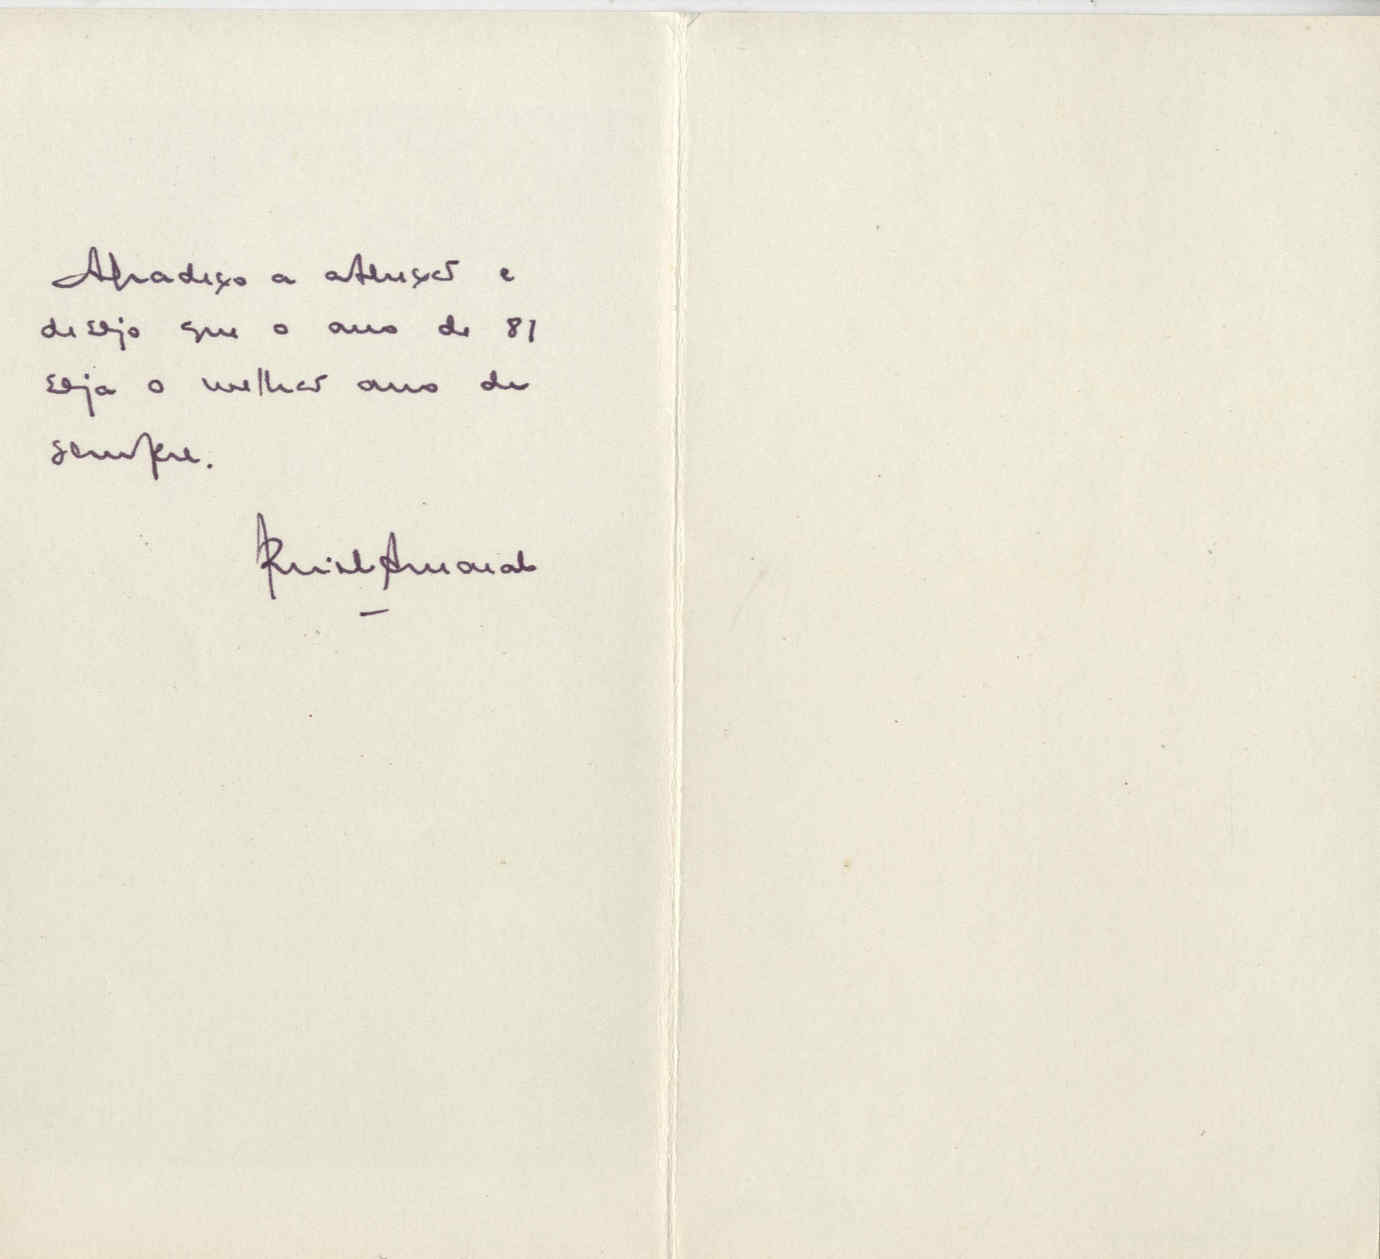 Agradeço a atenção e
desejo que o ano de 81
seja o melhor ano de
sempre.